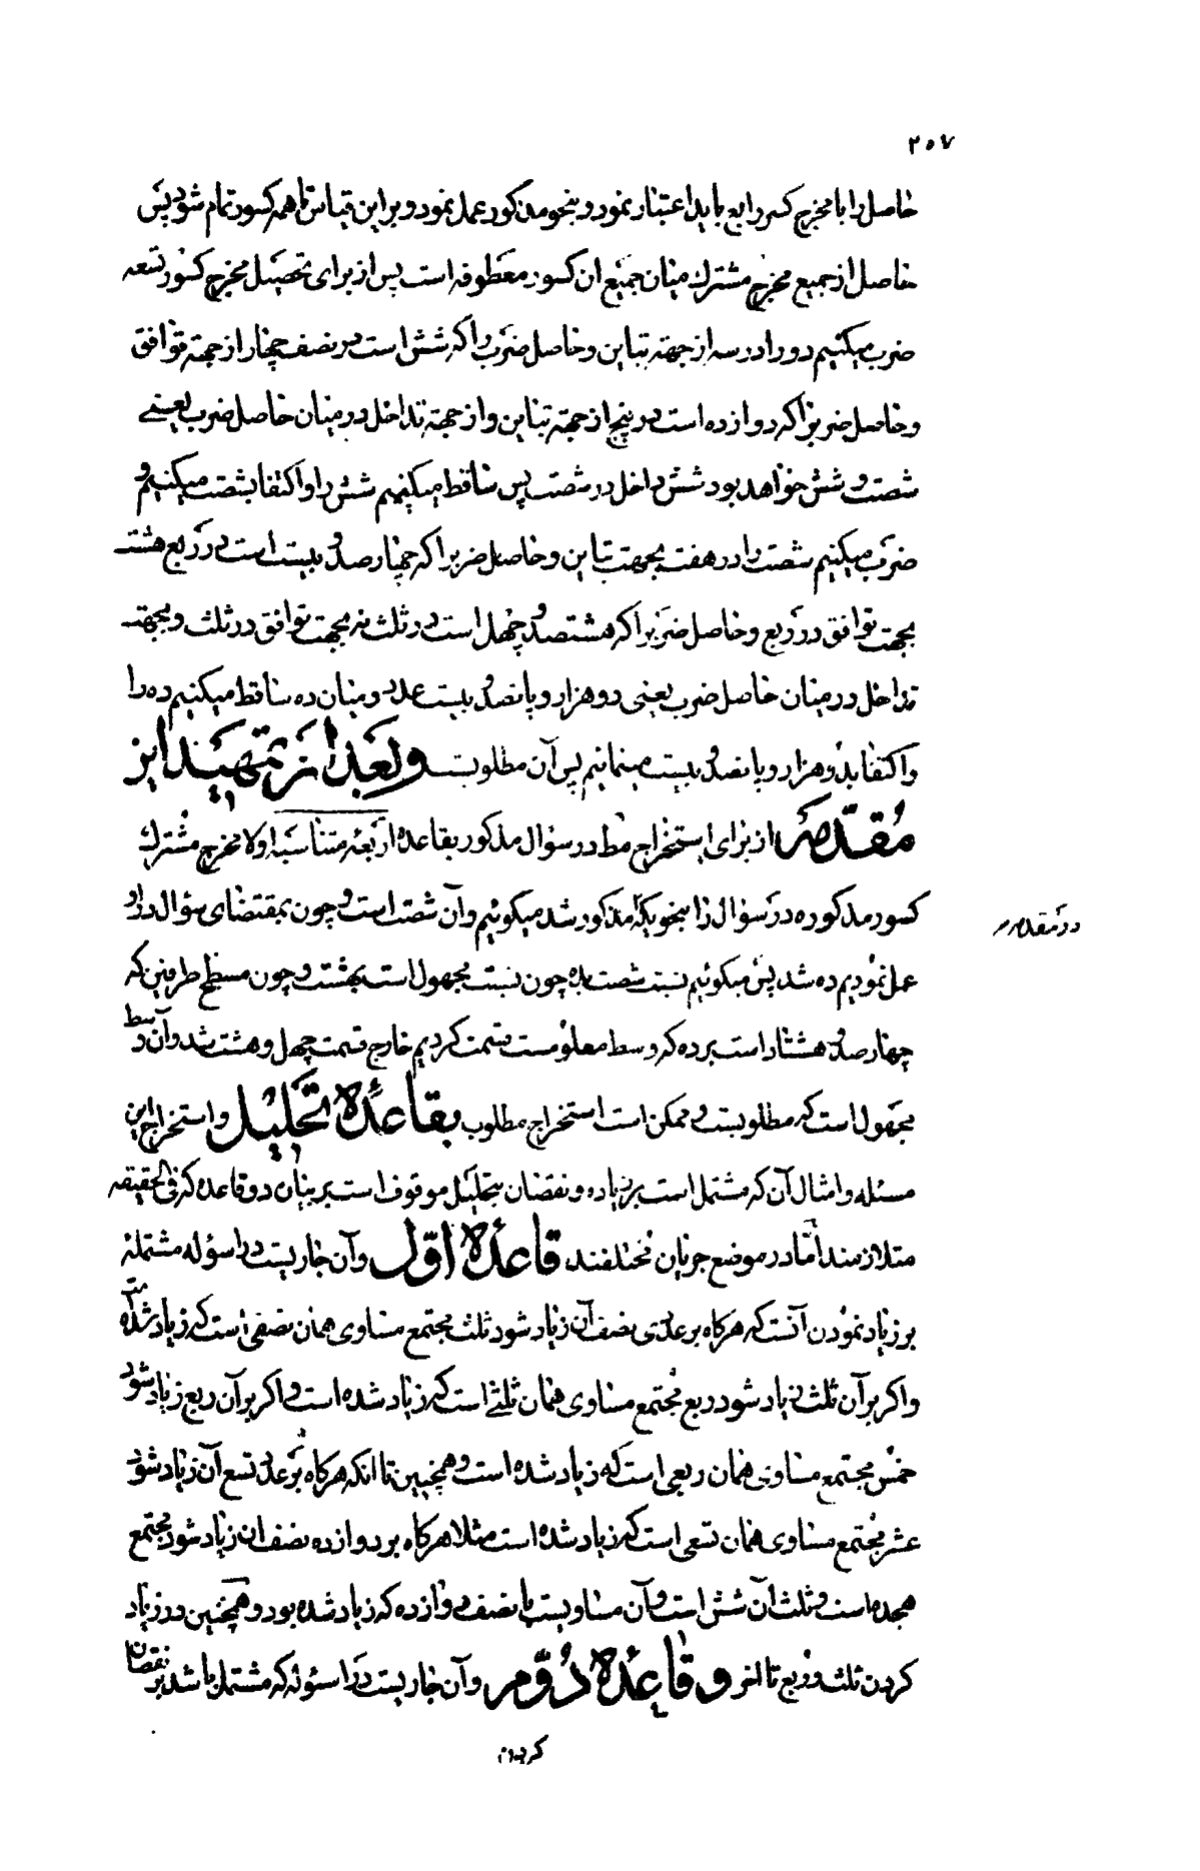 ۲۵۷
حاصل را با مخرج کسر رابع باید اعتبار نمود و بنحو مذکور عمل نمود و براین قیاس تا همه کسور تمام شود پس
حاصل از جمیع مخرج مشترک میان جمیع ان کسور معطوفه است پس از برای تحصیل مخرج کسور تسعه
ضرب میکنیم دو را در سه از جهة تباین و حاصل ضرب را که شش است در نصف چهار از جهة توافق
و حاصل ضربرا که دوازده است در پنج از جهة تباین و از جهة تداخل در میان حاصل ضرب یعنی
شصت و شش خواهد بود شش داخل در شصت پس ساقط میکنیم شش را و اکتفا بشصت میکنیم و
ضرب میکنیم شصت را در هفت بجهت تباین و حاصل ضربرا که چهار صد و بیست است در ربع هشت
بجهت توافق در ربع و حاصل ضربرا که هشتصد و چهل است در ثلث نه بجهت توافق در ثلث و بجهت
تداخل در میان حاصل ضرب یعنی دو هزار و پانصد و بیست عدد و میان ده ساقط میکنیم ده را
و اکتفا بدو هزار و پانصد و بیست مینمائیم پس آن مطلوبست و بعد از تمهید این
مقدمه از برای استخراج مط در سؤال مذکور بقاعده اربعه متناسبه اولا مخرج مشترک
کسور مذکوره در سؤال را بنحویکه مذکور شد میکوئیم و آن شصت است و چون بمقتضای سؤال در او
در مقدمه
عمل نمودیم ده شد پس میکوئیم نسبت شصت بده چون نسبت مجهول است بهشت و چون مسطح طرفین که
چهار صد و هشتاد است بر ده که وسط معلومست قسمت کردیم خارج قسمت چهل و هشت شد و آن وسط
مجهول است که مطلوبست و ممکن است استخراج مطلوب بقاعده تحلیل و استخراج این
مسئله و امثال آن که مشتمل است بر زیاده و نقصان بتحلیل موقوف است بر بیان دو قاعده که فی الحقیقه
متلازمند اما در موضع جریان مختلفند قاعده اول و آن جاریست در اسؤله مشتمله
بر زیاد نمودن آنست که هرکاه بر عددی نصف آن زیاد شود ثلث مجتمع مساوی همان نصفی است که زیاد شده
واکر بر آن ثلث زیاد شود ربع مجتمع مساوی همان ثلثی است که زیاد شده است و اکر بر آن ربع زیاد شود
خمس مجتمع مساوی همان ربعی است که زیاد شده است و همچنین تا انکه هرکاه بر عدد تسع آن زیاد شود
عشر مجتمع مساوی همان تسعی است که زیاد شده است مثلا هرکاه بر دوازده نصف ان زیاد شود مجتمع
هجده است و ثلث آن شش است و آن مساویست با نصف دوازده که زیاد شده بود و همچنین در زیاد
کردن ثلث و ربع تا اخر و قاعده دوم و آن جاریست در اسئوله که مشتمل باشد بر نقصان
کردن